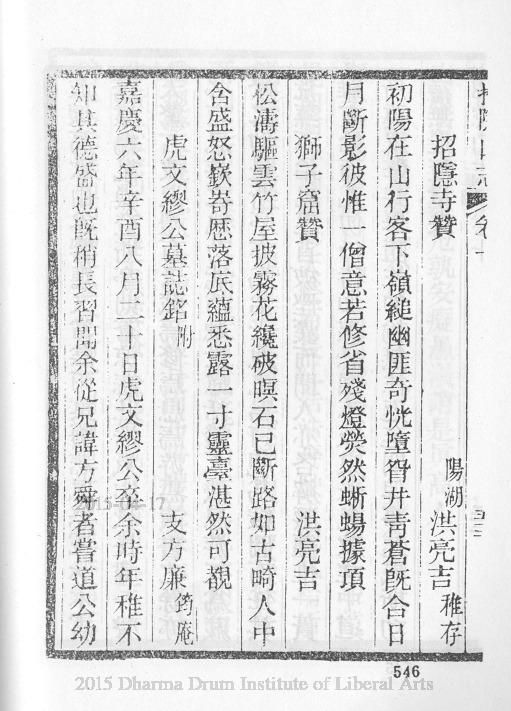 招隱山志 卷十
招隱寺贊 陽湖 洪亮吉 稚存
初陽在山行客下嶺縋幽匪奇恍墮眢井青蒼旣合日
月斷影彼惟一僧意若修省殘燈熒然蜥蜴據項
獅子窟贊 洪亮吉
松濤驅雲竹屋披霧花纔破暝石已斷路如古畸人中
含盛怒嶔嵜歷落底蘊悉露一寸靈臺湛然可覩
虎文繆公墓誌銘 附 支方廉 筠庵
嘉慶六年辛酉八月二十日虎文繆公卒余時年稚不
知其德盛也旣稍長習聞余從兄諱方舜者嘗道公幼
2015-04-17
546
2015 Dharma Drum Institute of Liberal Arts